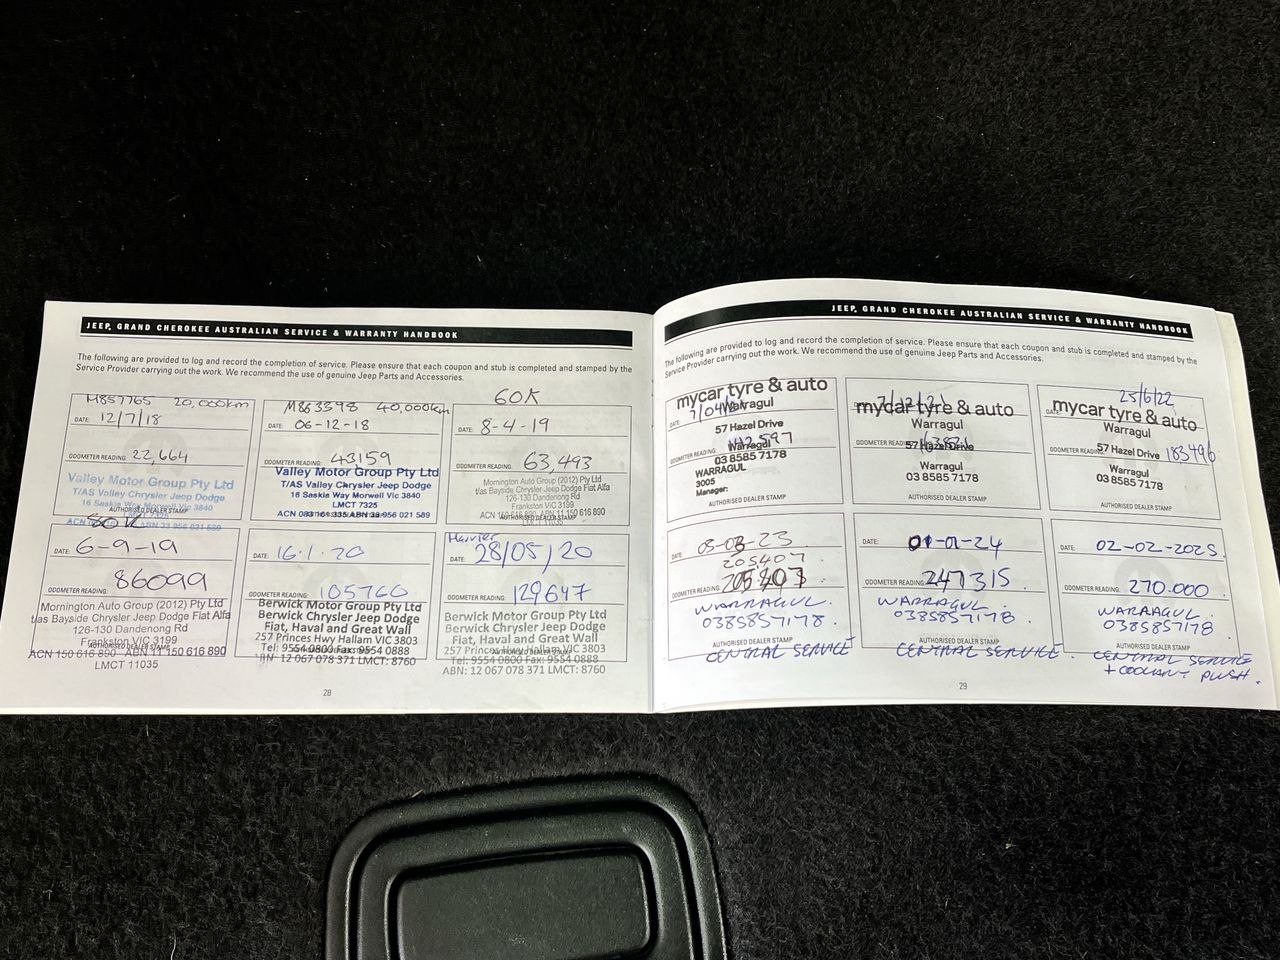 JEEP, GRAND CHEROKEE AUSTRALIAN SERVICE & WARRANTY HANDBOOK
The following are provided to log and record the completion of service. Please ensure that each coupon and stub is completed and stamped by the
Service Provider carrying out the work. We recommend the use of genuine Jeep Parts and Accessories.
M857765 20,000km
DATE: 12/7/18
ODOMETER READING: 22,664
Valley Motor Group Pty Ltd
T/AS Valley Chrysler Jeep Dodge
16 Saskia Way Morwell Vic 3840
AUTHORISED DEALER STAMP
M863398 40,000km
DATE: 06-12-18
ODOMETER READING: 43159
Valley Motor Group Pty Ltd
T/AS Valley Chrysler Jeep Dodge
16 Saskia Way Morwell Vic 3840
LMCT 7325
ACN 083 161 335 ABN 39 956 021 589
60K
DATE: 8-4-19
ODOMETER READING: 63,493
Mornington Auto Group (2012) Pty Ltd
t/as Bayside Chrysler Jeep Dodge Fiat Alfa
126-130 Dandenong Rd
Frankston VIC 3199
ACN 150 616 890 ABN 11 150 616 890
AUTHORISED DEALER STAMP
LMCT 11035
DATE: 6-9-19
ODOMETER READING: 86099
Mornington Auto Group (2012) Pty Ltd
t/as Bayside Chrysler Jeep Dodge Fiat Alfa
126-130 Dandenong Rd
Frankston VIC 3199
AUTHORISED DEALER STAMP
ACN 150 616 890 ABN 11 150 616 890
LMCT 11035
DATE: 16.1.20
ODOMETER READING: 105760
Berwick Motor Group Pty Ltd
Berwick Chrysler Jeep Dodge
Fiat, Haval and Great Wall
257 Princes Hwy Hallam VIC 3803
Tel: 9554 0800 Fax: 9554 0888
AUTHORISED DEALER STAMP
12 067 078 371 LMCT: 8760
DATE: 28/05/20
ODOMETER READING: 129647
Berwick Motor Group Pty Ltd
Berwick Chrysler Jeep Dodge
Fiat, Haval and Great Wall
257 Princes Hwy Hallam VIC 3803
Tel: 9554 0800 Fax: 9554 0888
AUTHORISED DEALER STAMP
ABN: 12 067 078 371 LMCT: 8760
28
JEEP, GRAND CHEROKEE AUSTRALIAN SERVICE & WARRANTY HANDBOOK
The following are provided to log and record the completion of service. Please ensure that each coupon and stub is completed and stamped by the
Service Provider carrying out the work. We recommend the use of genuine Jeep Parts and Accessories.
mycar tyre & auto
DATE:
Warragul
57 Hazel Drive
ODOMETER READING:
Warragul
03 8585 7178
WARRAGUL
3005
Manager:
AUTHORISED DEALER STAMP
mycar tyre & auto
Warragul
ODOMETER READING: 57 Hazel Drive
Warragul
03 8585 7178
AUTHORISED DEALER STAMP
25/6/22
DATE:
mycar tyre & auto
Warragul
ODOMETER READING: 57 Hazel Drive 183496
Warragul
03 8585 7178
AUTHORISED DEALER STAMP
DATE: 03-03-23
205407
ODOMETER READING: 205407
WARRAGUL
0385857178
AUTHORISED DEALER STAMP
CENTRAL SERVICE
DATE: 01-01-24
ODOMETER READING: 247315
WARRAGUL
0385857178
AUTHORISED DEALER STAMP
CENTRAL SERVICE.
DATE: 02-02-2025
ODOMETER READING: 270.000
WARRAGUL
0385857178
AUTHORISED DEALER STAMP
CENTRAL SERVICE
+ COOLANT FLUSH.
29